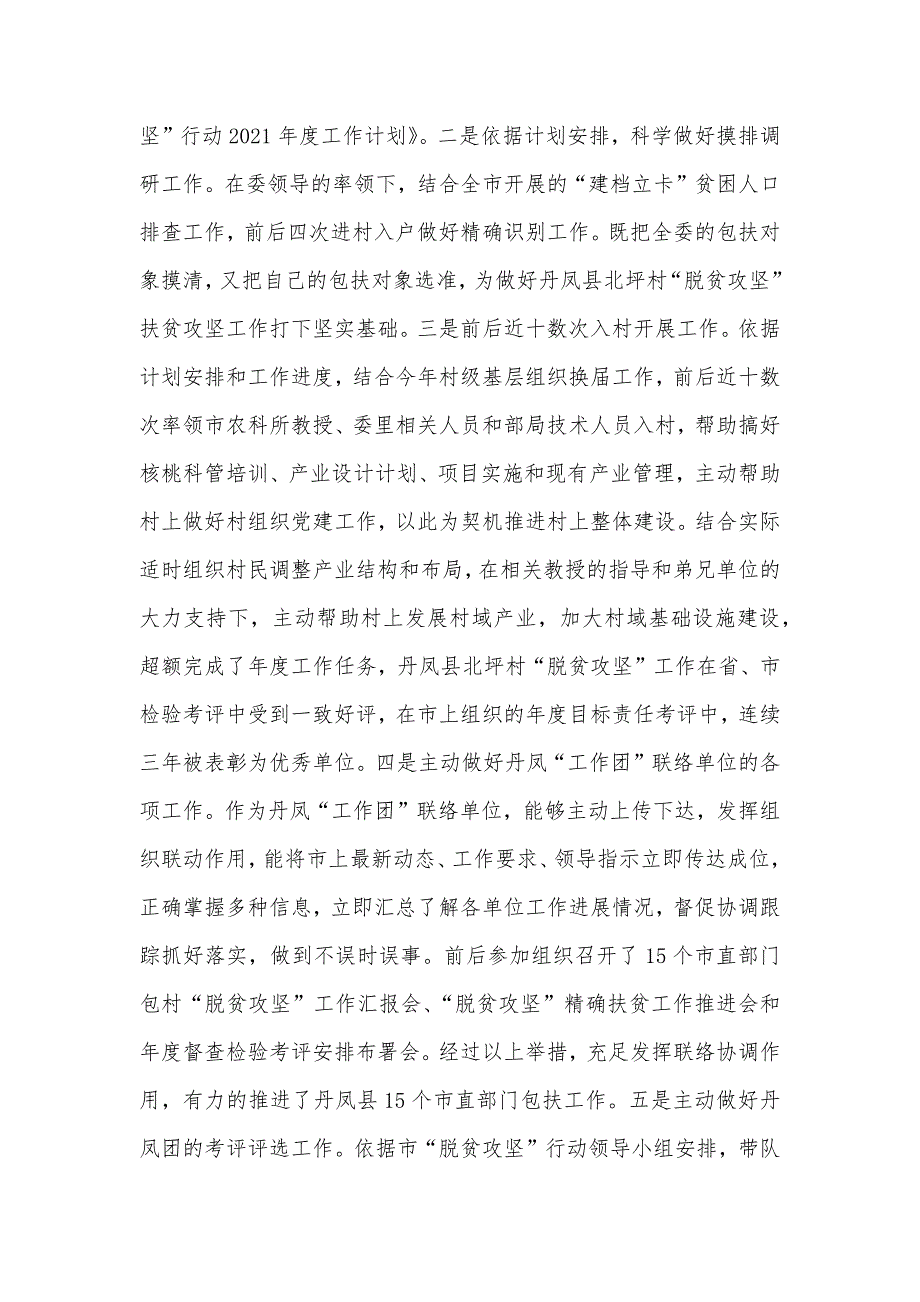 坚”行动 2021 年度工作计划》。二是依据计划安排，科学做好摸排调
研工作。在委领导的率领下，结合全市开展的“建档立卡”贫困人口
排查工作，前后四次进村入户做好精确识别工作。既把全委的包扶对
象摸清，又把自己的包扶对象选准，为做好丹凤县北坪村“脱贫攻坚”
扶贫攻坚工作打下坚实基础。三是前后近十数次入村开展工作。依据
计划安排和工作进度，结合今年村级基层组织换届工作，前后近十数
次率领市农科所教授、委里相关人员和部局技术人员入村，帮助搞好
核桃科管培训、产业设计计划、项目实施和现有产业管理，主动帮助
村上做好村组织党建工作，以此为契机推进村上整体建设。结合实际
适时组织村民调整产业结构和布局，在相关教授的指导和弟兄单位的
大力支持下，主动帮助村上发展村域产业，加大村域基础设施建设，
超额完成了年度工作任务，丹凤县北坪村“脱贫攻坚”工作在省、市
检验考评中受到一致好评，在市上组织的年度目标责任考评中，连续
三年被表彰为优秀单位。四是主动做好丹凤“工作团”联络单位的各
项工作。作为丹凤“工作团”联络单位，能够主动上传下达，发挥组
织联动作用，能将市上最新动态、工作要求、领导指示立即传达成位，
正确掌握多种信息，立即汇总了解各单位工作进展情况，督促协调跟
踪抓好落实，做到不误时误事。前后参加组织召开了 15 个市直部门
包村“脱贫攻坚”工作汇报会、“脱贫攻坚”精确扶贫工作推进会和
年度督查检验考评安排布署会。经过以上举措，充足发挥联络协调作
用，有力的推进了丹凤县 15 个市直部门包扶工作。五是主动做好丹
凤团的考评评选工作。依据市“脱贫攻坚”行动领导小组安排，带队